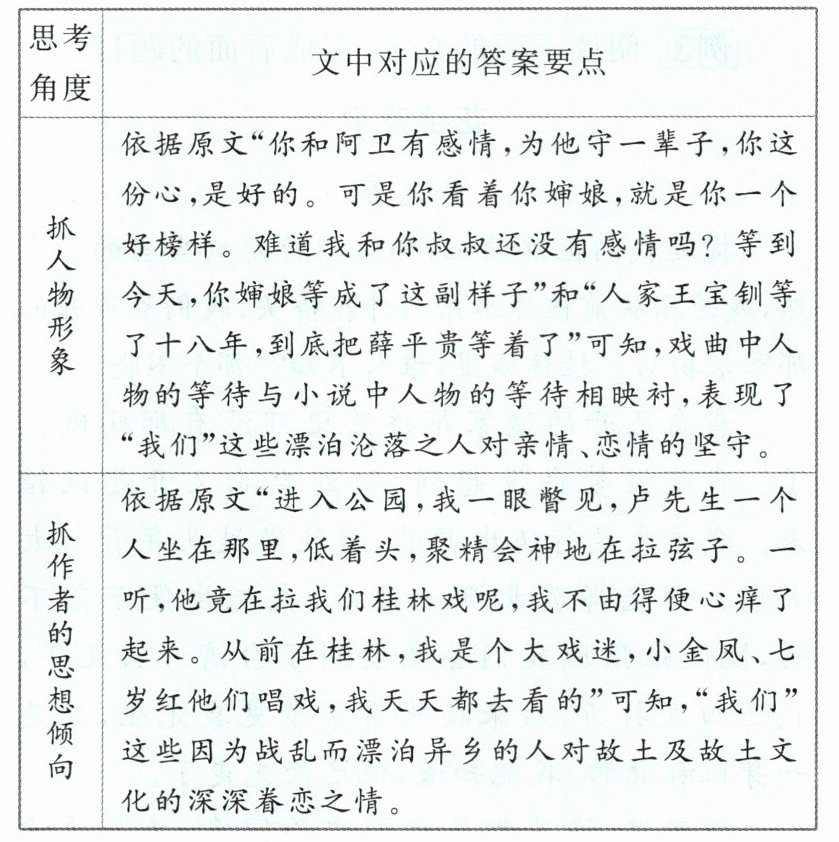 思考
角度
文中对应的答案要点
抓人物形象
依据原文“你和阿卫有感情,为他守一辈子,你这
份心,是好的。可是你看着你婶娘,就是你一个
好榜样。难道我和你叔叔还没有感情吗?等到
今天,你婶娘等成了这副样子”和“人家王宝钏等
了十八年,到底把薛平贵等着了”可知,戏曲中人
物的等待与小说中人物的等待相映衬,表现了
“我们”这些漂泊沦落之人对亲情、恋情的坚守。
抓作者的思想倾向
依据原文“进入公园,我一眼瞥见,卢先生一个
人坐在那里,低着头,聚精会神地在拉弦子。一
听,他竟在拉我们桂林戏呢,我不由得便心痒了
起来。从前在桂林,我是个大戏迷,小金凤、七
岁红他们唱戏,我天天都去看的”可知,“我们”
这些因为战乱而漂泊异乡的人对故土及故土文
化的深深眷恋之情。